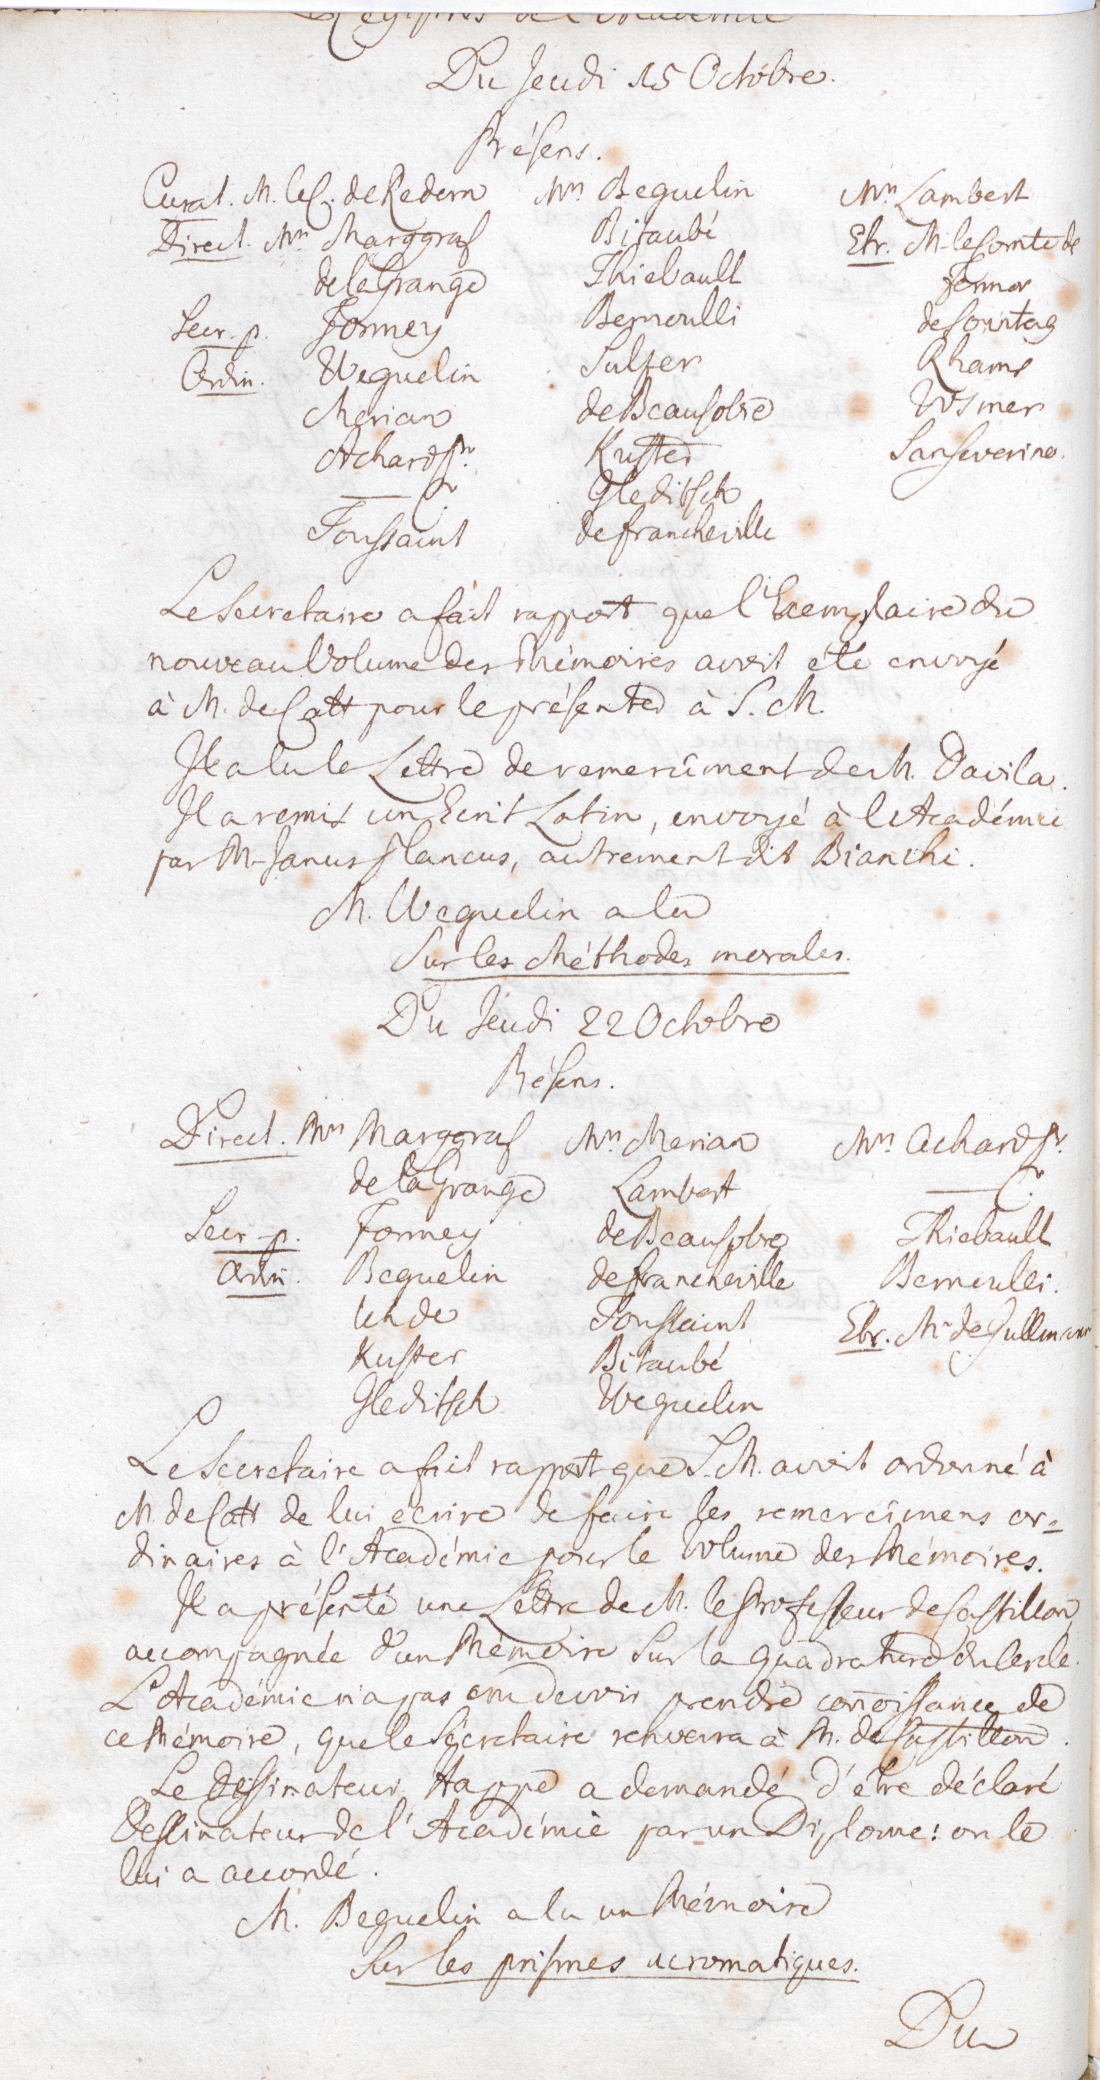 Registres de l'Académie
Du Jeudi 15 Octobre.
Présens.
Curat. M. le C. de Redern Mrs Beguelin Mrs Lambert
Direct. Mrs Marggraf Bitaubé Etr. M. le Comte de
de la Grange Thiebault
Secr. p. Formey Bernoulli de Sonntag
Ordin. Weguelin Sulzer Rhams
Merian de Beausobre
Achard Sr. Kuster Sanseverino.
— Jr Gleditsch
Toussaint de Francheville
Le Secretaire a fait rapport que l'Exemplaire du
nouveau Volume des Mémoires avoit été envoyé
à M. de Catt pour le présenter à S. M.
Il a lu la Lettre de remercîment de M. Davila.
Il a remis un Ecrit Latin, envoyé à l'Académie
par M. Janus Plancus, autrement dit Bianchi.
M. Weguelin a lu
Sur les Méthodes morales.
Du Jeudi 22 Octobre
Présens.
Direct. Mrs Marggraf Mrs. Merian Mrs Achard Sr.
de la Grange Lambert — Jr
Secr. p. Formey de Beausobre Thiebault
Ordin. Beguelin de Francheville Bernoulli.
Uhde Toussaint Etr. Mr de
Kuster Bitaubé
Gleditsch Weguelin
Le Secretaire a fait rapport que S. M. avoit ordonné à
M. de Catt de lui ecrire de faire les remercîmens or-
dinaires à l'Académie pour le Volume des Mémoires.
Il a présenté une Lettre de M. le Professeur de Castillon,
accompagnée d'un Mémoire Sur la quadrature du Cercle.
L'Académie n'a pas cru devoir prendre connoissance de
ce Mémoire, que le Sécretaire renverra à M. de Castillon.
Le Dessinateur Happe a demandé d'être déclaré
Dessinateur de l'Académie par un Diplome: on le
lui a accordé.
M. Beguelin a lu un Mémoire
Sur les prismes acromatiques.
Du